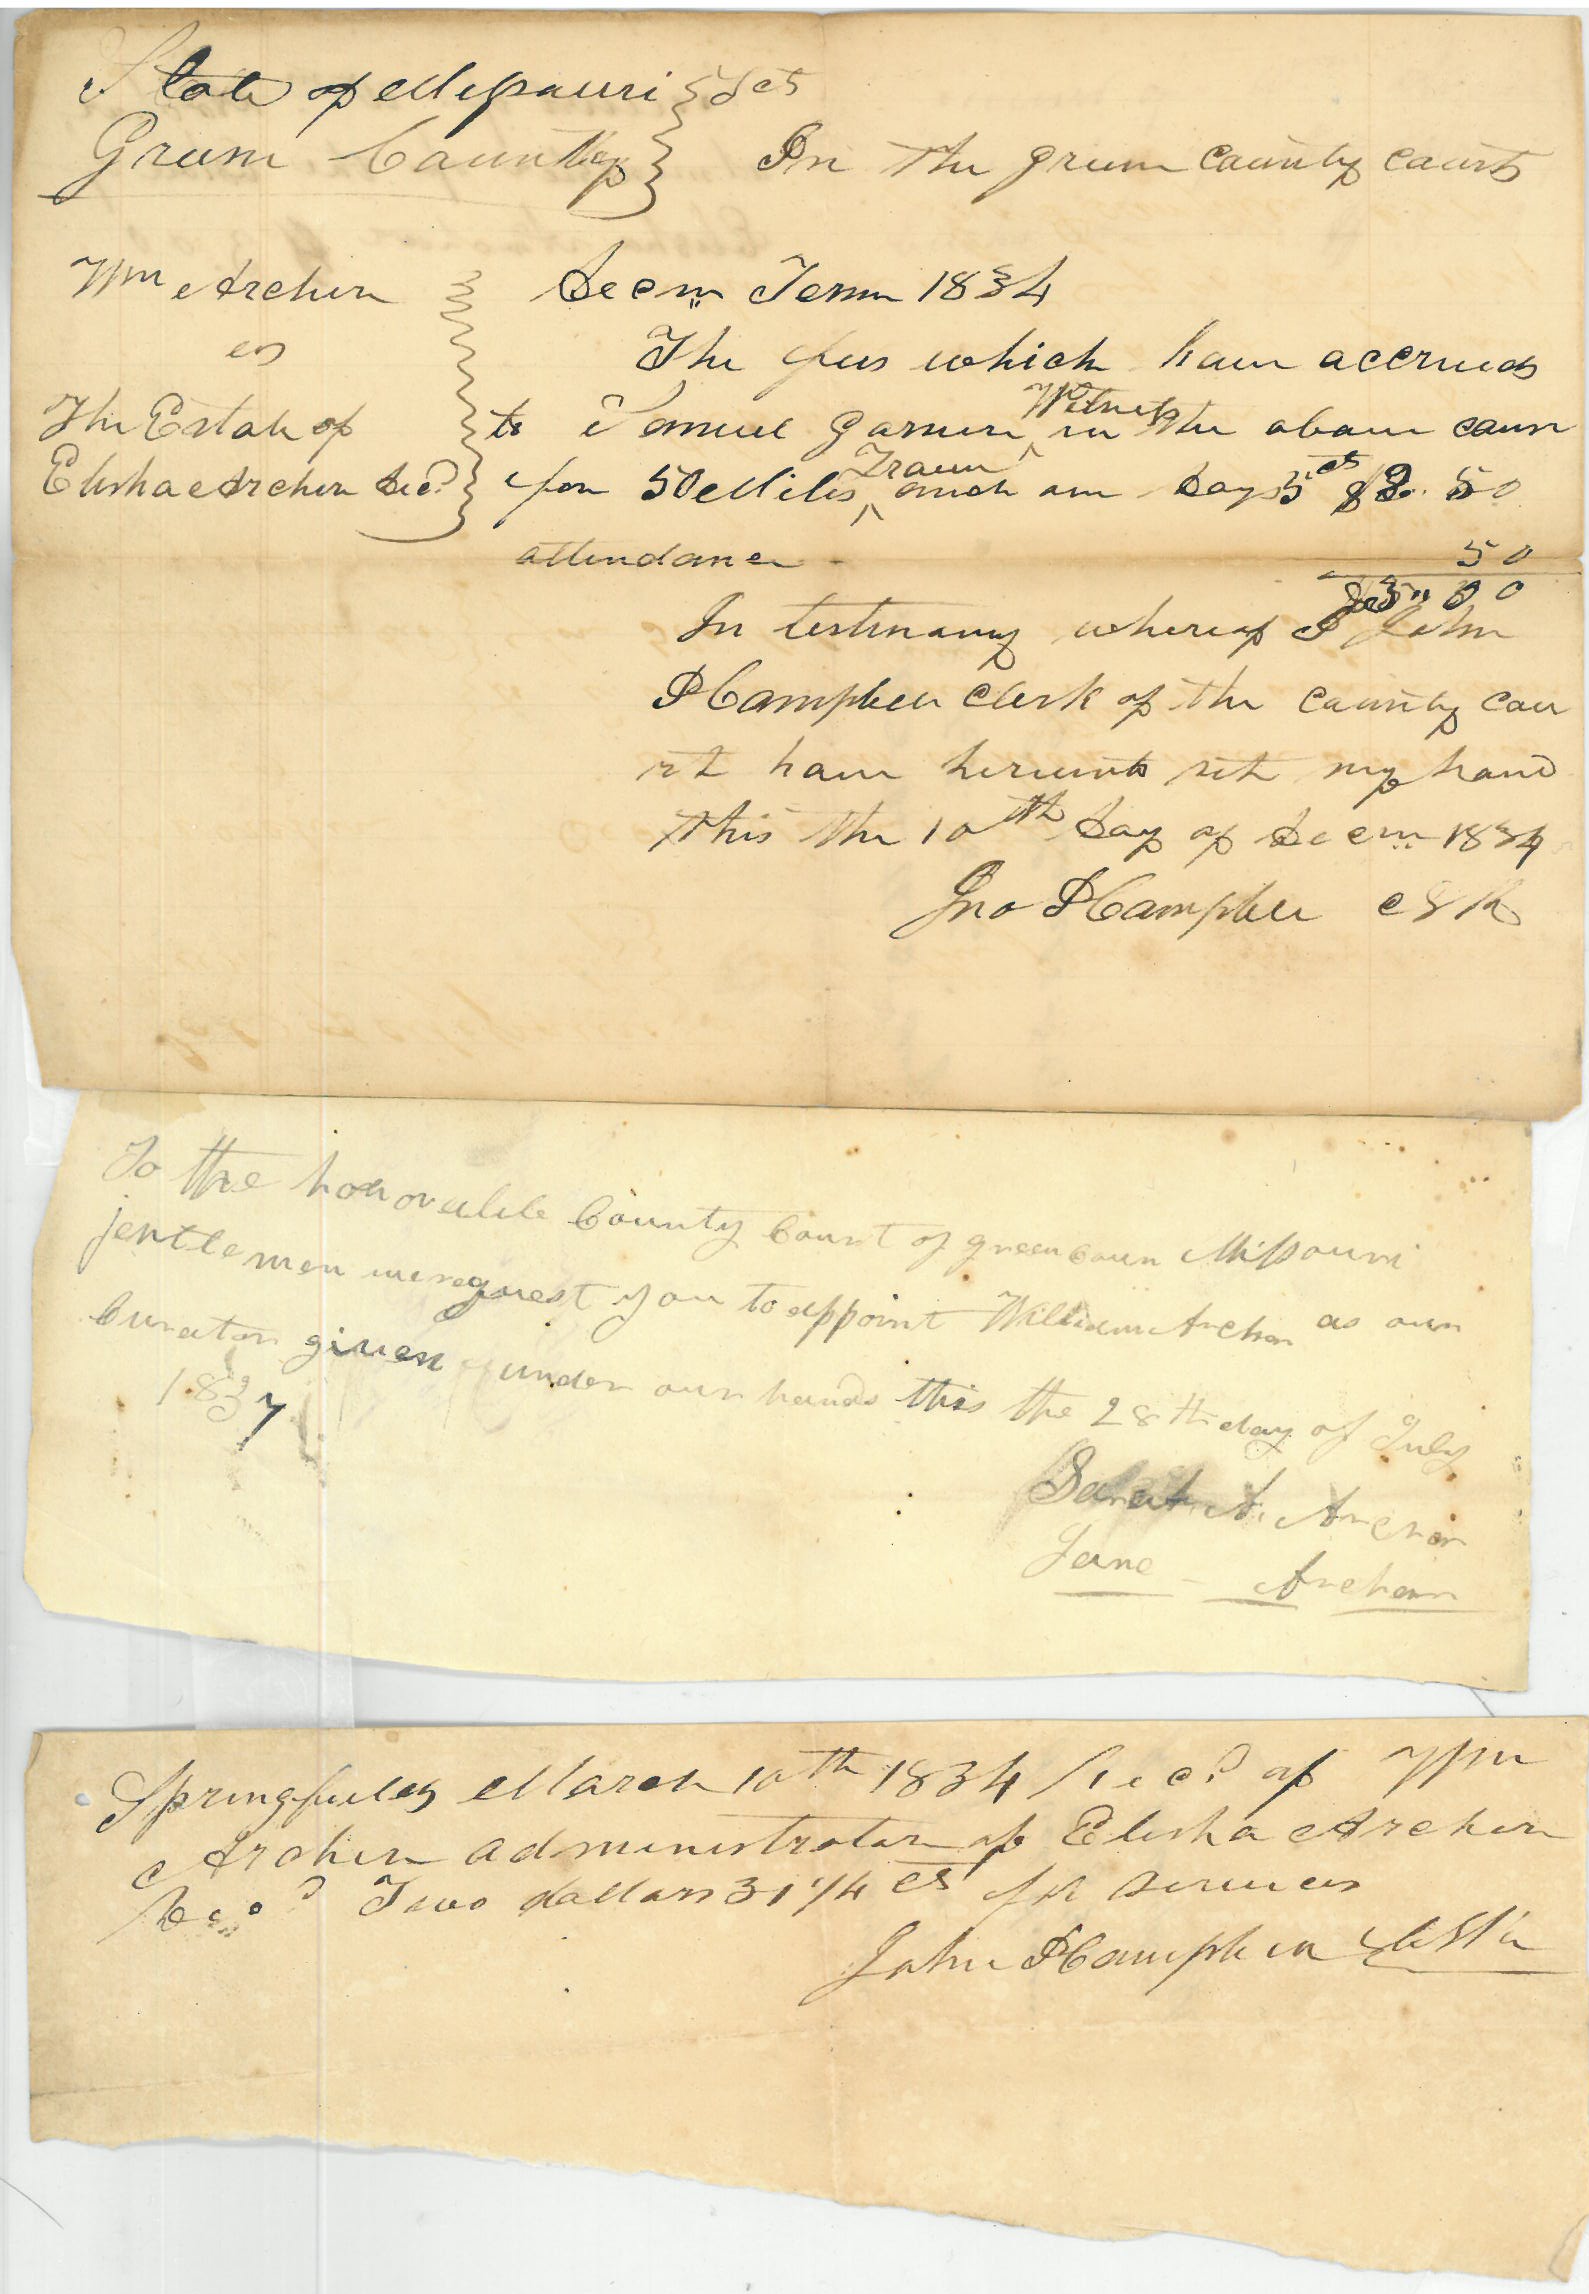 State of Missouri } Sct
Green County } In the green county court
Wm Archer } Decm Term 1834
vs } The fees which have accrued
The Estate of } to Samuel Garner Witness in the above caus
Elisha Archer Decd } for 50 Miles Travil and one day 5 cts $2. 50
attendance 50
$3" 00
In testimony whereof I John
P Campbell clerk of the county cou
rt have hereunto set my hand
this the 10th day of Decm 1834
Jno P Campbell Clk
To the honorable County Court of green coun Missouri
jentlemen we request you to appoint William Archer as our
Curator given under our hands this the 28th day of July
1837
Sarah A. Archer
Jane - Archer
Springfield March 10th 1834 Recd of Wm
Archer administrator of Elisha Archer
Decd Two dollars 31 1/4 cts for services
John P Campbell Clk